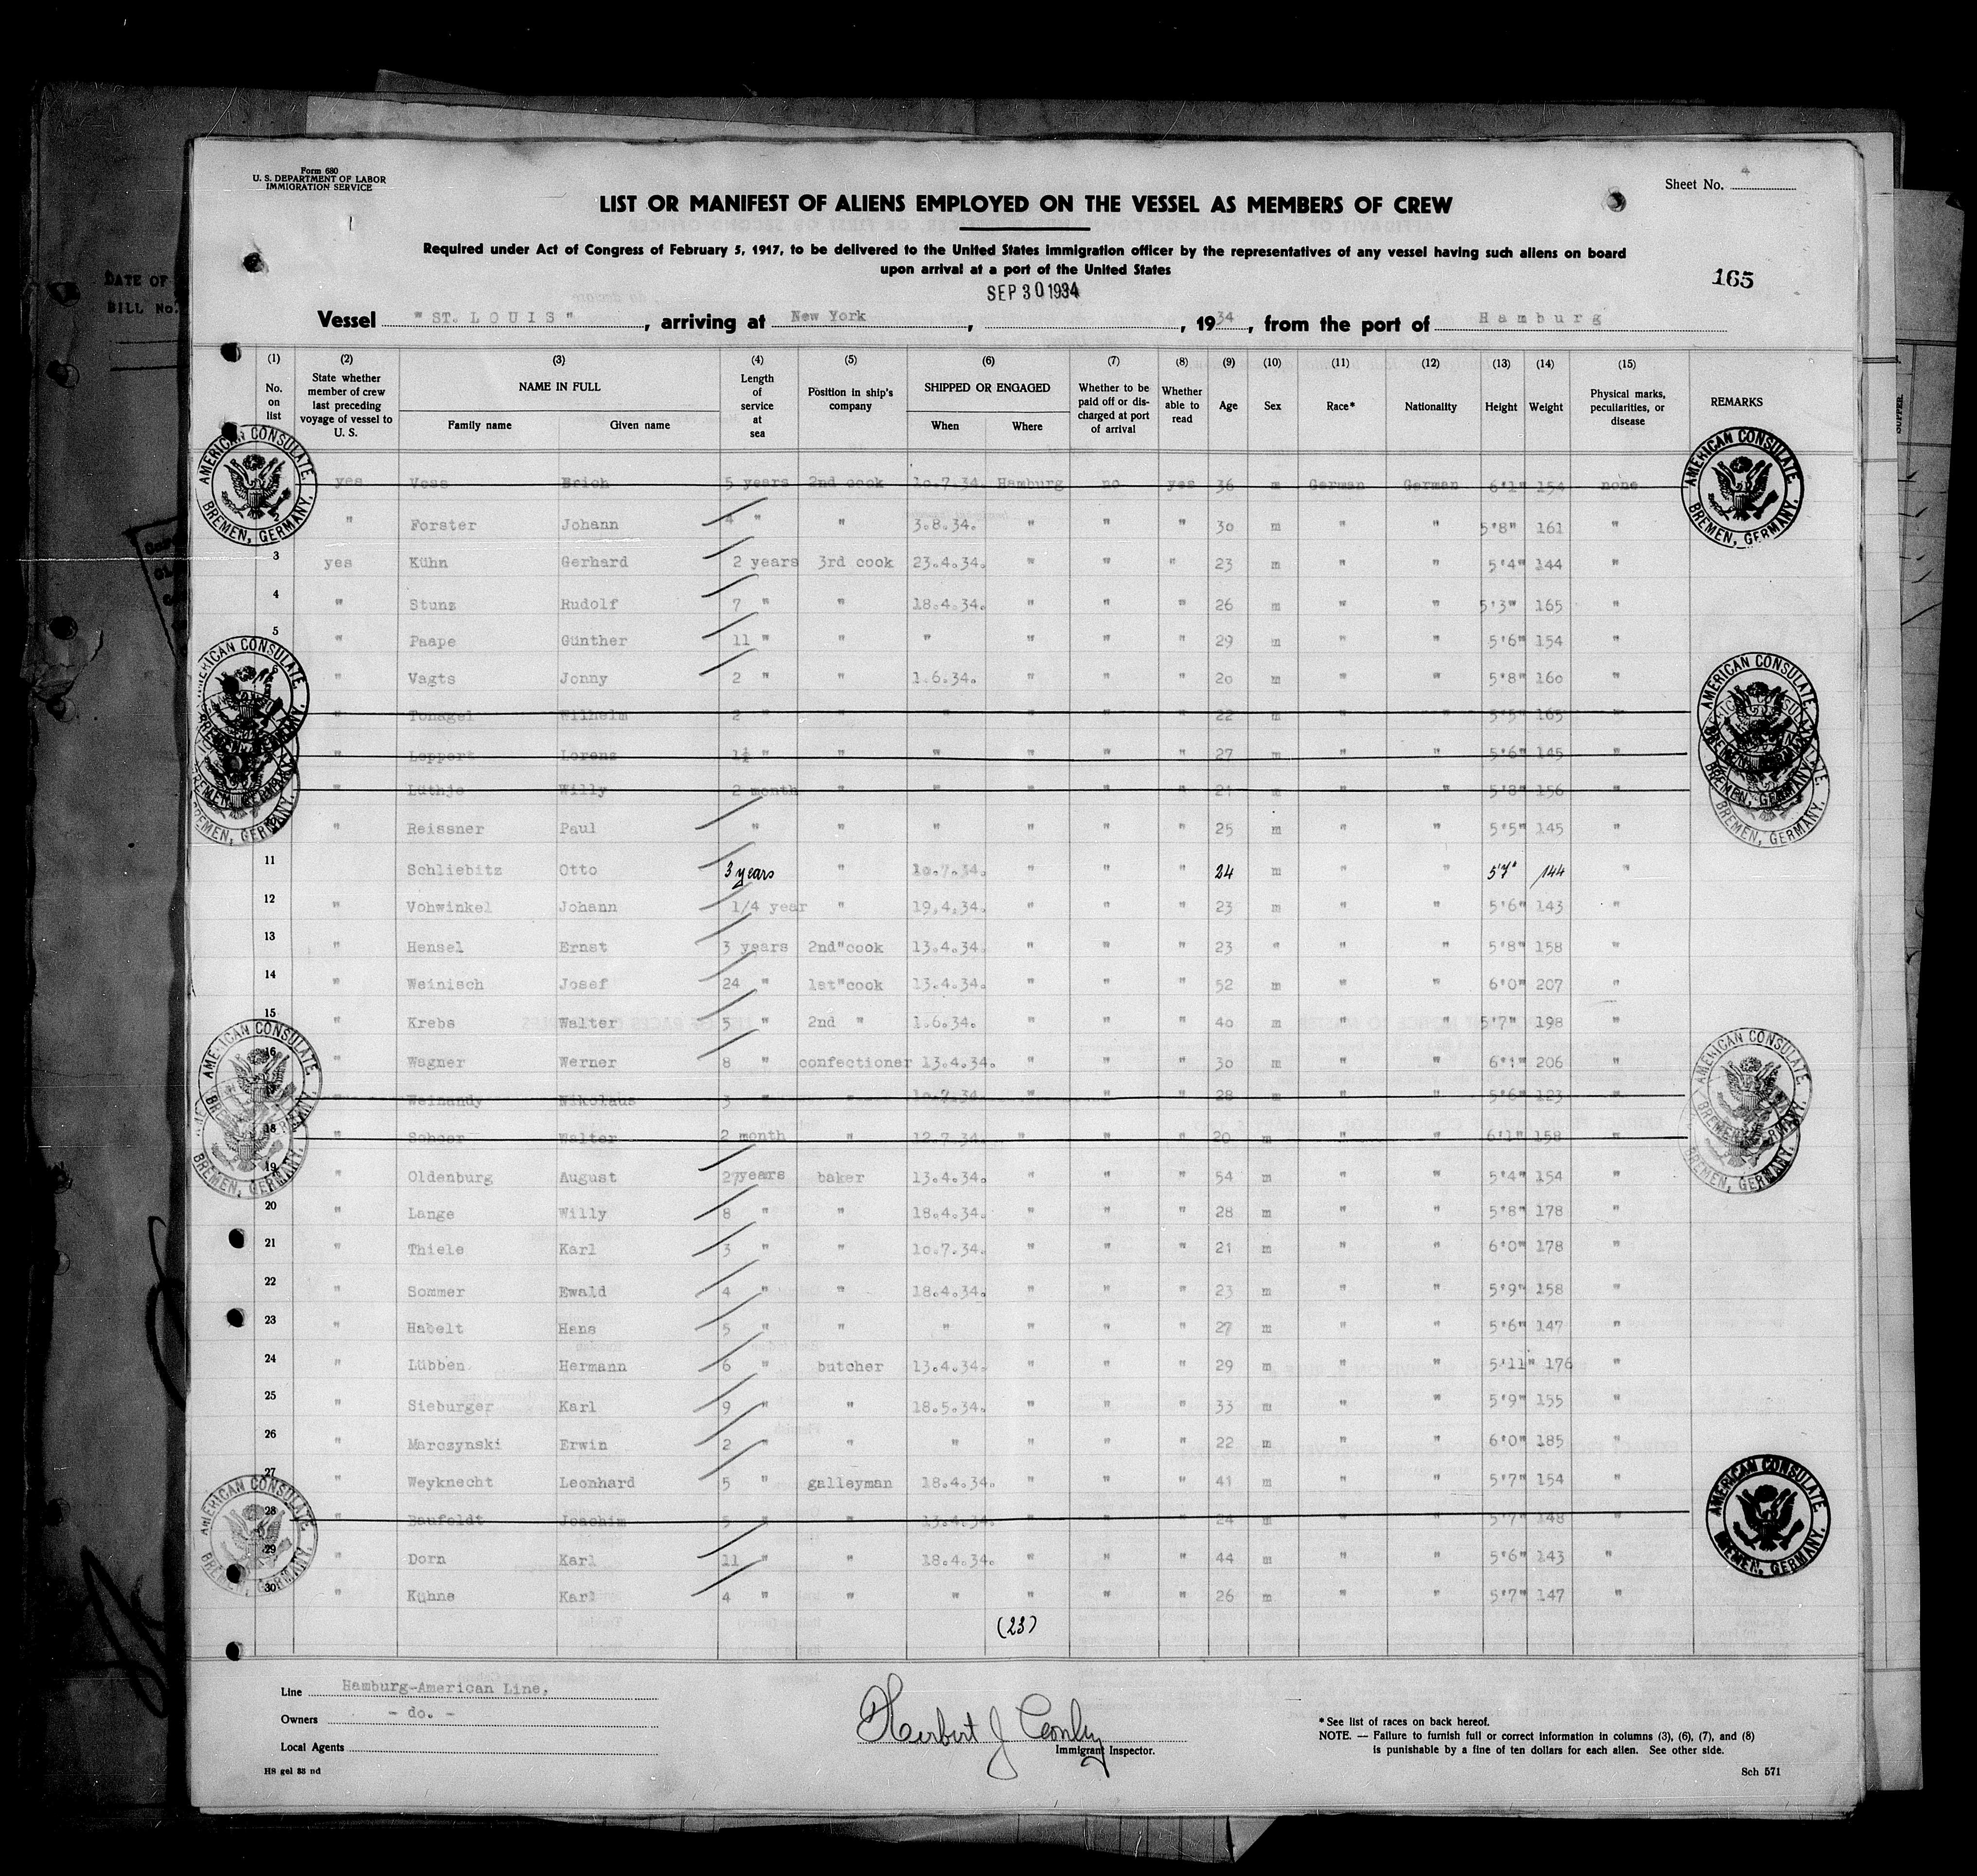 Form 680
U. S. DEPARTMENT OF LABOR
IMMIGRATION SERVICE
Sheet No. 4
LIST OR MANIFEST OF ALIENS EMPLOYED ON THE VESSEL AS MEMBERS OF CREW
Required under Act of Congress of February 5, 1917, to be delivered to the United States immigration officer by the representatives of any vessel having such aliens on board
upon arrival at a port of the United States
165
SEP 30 1934
Vessel "ST. LOUIS", arriving at New York, , 1934, from the port of Hamburg
(1) (2) (3) (4) (5) (6) (7) (8) (9) (10) (11) (12) (13) (14) (15)
No. on list | State whether member of crew last preceding voyage of vessel to U. S. | NAME IN FULL Family name Given name | Length of service at sea | Position in ship's company | SHIPPED OR ENGAGED When Where | Whether to be paid off or discharged at port of arrival | Whether able to read | Age | Sex | Race* | Nationality | Height | Weight | Physical marks, peculiarities, or disease | REMARKS
yes Voss Erich 5 years 2nd cook 10.7.34. Hamburg no yes 36 m German German 6'1" 154 none
" Forster Johann 4 " " 3.8.34. " " " 30 m " " 5'8" 161 "
3 yes Kühn Gerhard 2 years 3rd cook 23.4.34. " " " 23 m " " 5'4" 144 "
4 " Stunz Rudolf 7 " " 18.4.34. " " " 26 m " " 5'3" 165 "
5 " Paape Günther 11 " " " " " " 29 m " " 5'6" 154 "
6 " Vagts Jonny 2 " " 1.6.34. " " " 20 m " " 5'8" 160 "
" Tonagel Wilhelm 2 " " " " " " 22 m " " 5'5" 165 "
" Leppert Lorenz 1½ " " " " " " 27 " " 5'6" 145 "
" Lüthje Willy 2 month " " " " " 21 m " " 5'8" 156 "
" Reissner Paul " " " " " " 25 m " " 5'5" 145 "
11 Schliebitz Otto 3 years " 10.7.34. " " " 24 m " " 5'7" 144 "
12 " Vohwinkel Johann 1/4 year " 19.4.34. " " " 23 m " " 5'6" 143 "
13 " Hensel Ernst 3 years 2nd"cook 13.4.34. " " " 23 " " " 5'8" 158 "
14 " Weinisch Josef 24 " 1st"cook 13.4.34. " " " 52 m " " 6'0" 207 "
15 " Krebs Walter 5 " 2nd " 1.6.34. " " " 40 m " " 5'7" 198 "
16 " Wagner Werner 8 " confectioner 13.4.34. " " " 30 m " " 6'1" 206 "
" Weinandy Nikolaus 3 " " 10.7.34. " " " 28 m " " 5'6" 123 "
18 " Walter 2 month " 12.7.34. " " " 20 m " " 6'1" 158 "
19 " Oldenburg August 27years baker 13.4.34. " " " 54 m " " 5'4" 154 "
20 " Lange Willy 8 " " 18.4.34. " " " 28 m " " 5'8" 178 "
21 " Thiele Karl 3 " " 10.7.34. " " " 21 m " " 6'0" 178 "
22 " Sommer Ewald 4 " " 18.4.34. " " " 23 m " " 5'9" 158 "
23 " Habelt Hans 5 " " " " " " 27 m " " 5'6" 147 "
24 " Lübben Hermann 6 " butcher 13.4.34. " " " 29 m " " 5'11" 176 "
25 " Sieburger Karl 9 " " 18.5.34. " " " 33 m " " 5'9" 155 "
26 " Marczynski Erwin 2 " " " " " " 22 m " " 6'0" 185 "
27 " Weyknecht Leonhard 5 " galleyman 18.4.34. " " " 41 m " " 5'7" 154 "
28 " Baufeldt Joachim 5 " " 13.4.34. " " " 24 m " " 5'7" 148 "
29 " Dorn Karl 11 " " 18.4.34. " " " 44 m " " 5'6" 143 "
30 " Kühne Karl 4 " " " " " " 26 m " " 5'7" 147 "
(23)
AMERICAN CONSULATE, BREMEN, GERMANY.
Line Hamburg-American Line.
Owners - do. -
Local Agents
Herbert J
Immigrant Inspector.
*See list of races on back hereof.
NOTE. — Failure to furnish full or correct information in columns (3), (6), (7), and (8)
is punishable by a fine of ten dollars for each alien. See other side.
H8 gel 33 nd
Sch 571
DATE OF
BILL No.